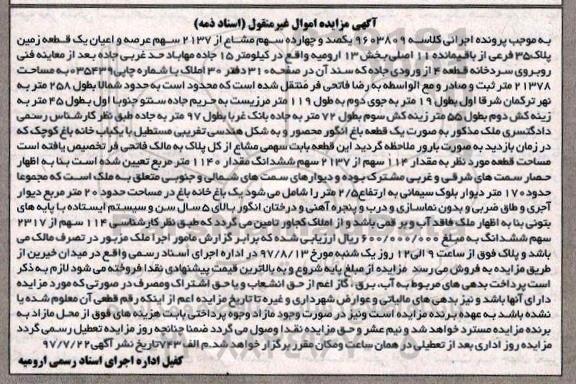 آگهی مزایده اموال غیرمنقول (اسناد ذمه)
به موجب پرونده اجرائی کلاسه 9603809 یکصد و چهارده سهم مشاع از 2137 سهم عرصه و اعیان یک قطعه زمین
پلاک 35 فرعی از باقیمانده 11 اصلی بخش 13 ارومیه واقع در کیلومتر 15 جاده مهاباد حد غربی جاده بعد از معاینه فنی
روبروی سردخانه قطعه 4 از ورودی جاده که سند آن در صفحه 310 دفتر 30 املاک با شماره چاپی 035439 به مساحت
21378 متر ثبت و صادر و مع الواسطه به رضا فاتحی فر منتقل شده است که محدود است به حدود شمالا بطول 258 متر به
نهر ترکمان شرقا اول بطول 19 متر به جوی دوم به طول 119 متر مرزیست به حریم جاده سنتو جنوبا اول بطول 45 متر به
زینه کش دوم بطول 55 متر زینه کش سوم بطول 72 متر به جاده بانک غربا بطول 97 متر به جاده طبق نظر کارشناس رسمی
دادگستری ملک مذکور به صورت یک قطعه باغ انگور محصور و به شکل هندسی تقریبی مستطیل با یکباب خانه باغ کوچک که
در زمان بازدید به صورت بارور ملاحظه گردید این قطعه بابت سهمی مشاع از کل پلاک به مالک فاتحی فر تخصیص یافته است
مساحت قطعه مورد نظر به مقدار 114 سهم از 2137 سهم ششدانگ مقدار 1140 متر مربع تعیین شده است بنا به اظهار
حصار سمت های شرقی و غربی مشترک بوده و دیوارهای سمت های شمالی و جنوبی متعلق به ملک است که مجموعا
حدود 170 متر دیوار بلوک سیمانی به ارتفاع 2/5 متر را شامل می شود یک باغ خانه باغ در مساحت حدود 20 متر مربع دیوار
آجری و طاق ضربی و بدون نماسازی و درب و پنجره آهنی و درختان انگور بالای 5 سال سن و سیستم ایستاده با پایه های
بتونی بنا به اظهار ملک فاقد آب و برق می باشد و از املاک مجاور تامین می گردد که طبق نظر کارشناسی 114 سهم از 2317
سهم ششدانگ به مبلغ 600/000/000 ریال ارزیابی شده که برابر گزارش مامور اجرا ملک مزبور در تصرف مالک می
باشد و پلاک فوق از ساعت 9 الی 12 روز یک شنبه مورخ 97/8/13 در اداره اجرای اسناد رسمی واقع در میدان خیرین از
طریق مزایده به فروش می رسد مزایده از مبلغ پایه شروع و به بالاترین قیمت پیشنهادی نقدا فروخته می شود لازم به ذکر
است پرداخت بدهی های مربوط به آب، برق، گاز اعم از حق انشعاب و یا حق اشتراک و مصرف در صورتی که مورد مزایده
دارای آنها باشد و نیز بدهی های مالیاتی و عوارض شهرداری و غیره تا تاریخ مزایده اعم از اینکه رقم قطعی آن معلوم شده یا
نشده باشد به عهده برنده مزایده است و نیز در صورت وجود مازاد وجوه پرداختی بابت هزینه های فوق از محل مازاد به
برنده مزایده مسترد خواهد شد و نیم عشر و حق مزایده نقدا وصول می گردد ضمنا چنانچه روز مزایده تعطیل رسمی گردد
مزایده روز اداری بعد از تعطیلی در همان ساعت ومکان مقرر برگزار خواهد شد.م الف 743 تاریخ نشر آگهی 97/7/22
کفیل اداره اجرای اسناد رسمی ارومیه